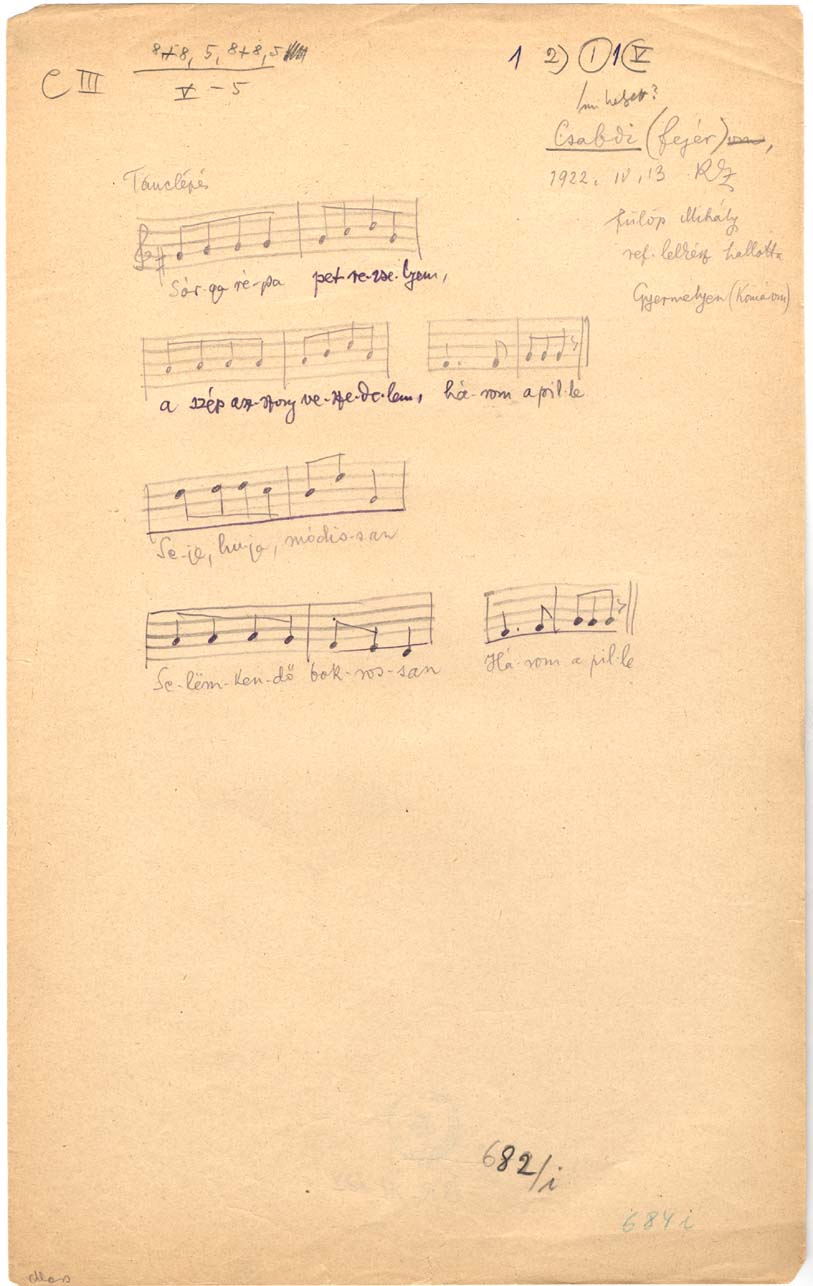 C III
8+8, 5, 8+8, 5
V – 5
1 2) I 1 V
Csabdi (Fejér)
1922. IV. 13 RZ
Fülöp Mihály
ref. lelkész hallotta
Gyermelyen (Komárom)
Tánclépés
Sár-ga ré-pa pet-re-zse-lyem,
a szép asz-szony ve-sze-de-lem, há-rom a pil-le
Se-je, hu-ja, módis-san
Se-lëm-ken-dő bok-ros-san Há-rom a pil-le
682/i
684 i